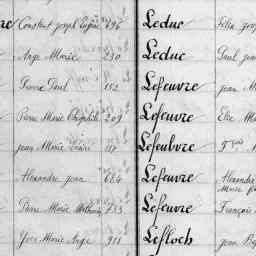 Constant joseph Eugène 696 Leduc Félix
Ange Marie 230 Leduc Paul
Pierre Paul 152 Lefeuvre jean M
Pierre Marie Théophile 209 Lefeuvre Elie M
jean Marie Lefeubvre
Alexandre jean 664 Lefeuvre Alexandre
Pierre Marie 733 Lefeuvre François
Yves Marie Ange 911 Lefloch jean